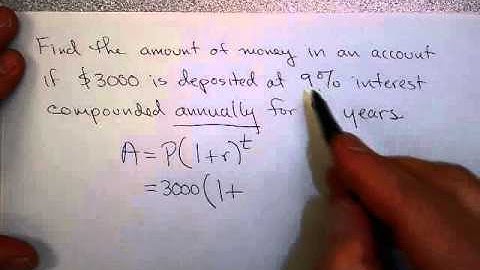 Find the amount of money in an account
if $3000 is deposited at 9% interest
compounded annually for years
A = P(1+r)^t
= 3000(1+